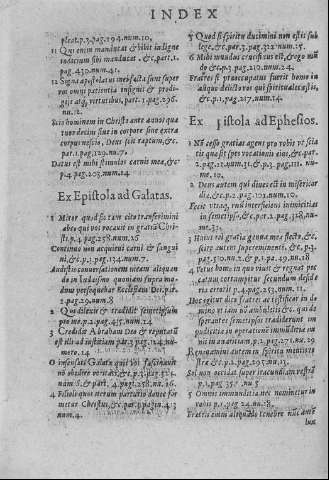 INDEX
pleat. p.3. pag.194. num.10.
11 Qui enim manducat & bibit indigne
iudicium sibi manducat. &c, part.1.
pag.430. num.41.
12 Signa apostolatus mei facta sunt super
vos omni patientia insignis & prodi-
gijs atq, virtutibus, part.3. pag.296.
nu.12.
Scis hominem in Christo ante annos qua
tuor decim siue in corpore siue extra
corpus nescio, Deus scit raptum, &c.
par.1. pag.129. nu.7.
Datus est mihi stimulus carnis meæ, &c.
p.4. pag.203. num.14
Ex Epistola ad Galatas.
1 Miror quod sic tam cito transferimini
abeo qui vos vocauit in gratiā Chri-
sti. p.4. pag.258. num.26
Continuo non acquieui carni & sangui
ni, &c. p.1. pag.134. num.7.
Audistis conuersationem meam aliquan
do in Iudaismo quoniam supra mo-
dum persequebar Ecclesiam Dei. par.
2. pag.29. num.8
2 Qui dilexit & tradidit semetipsum
pro me. p.2. pag.415. num.14
3 Credidit Abraham Deo & reputatū
est illi ad iustitiam par.3. pag.124. nu-
mero.14
O insensati Galatæ quis vos fascinauit
nō obedire veritati, &c. p.3. pag.524.
num.8. & part.4. pagi.258. nu.26.
4 Filioli quos iterum parturio donec for
metur Christus, &c. par. pagin.413
num.4.
5 Quod si spiritu ducimini non estis sub
lege, &c. part.3. pag.322. num.15.
6 Mihi mundus crucifixus est, & ego mū
do &c. p.3 pag.220. num.13.
Fratres si præoccupatus fuerit homo in
aliquo delicto vos qui spirituales estis,
&c. p.1. pag.217. num.14.
Ex pistola ad Ephesios.
1 Nō cesso gratias agens pro vobis vt scia
tis quæ sit spes vocationis eius, &c. part.
2. pag.21. num.31. & p.3. pag.111. nu-
me.10.
2 Deus autem qui diues est in misericor
dia, &c. p.2. pag.101. num.10.
Fecit vtraq, vnū interficiens inimicitias
in semetipso, &c. par.2. pag.118. nu-
me.31.
3 Huius rei gratia genua mea flecto, &c.
scire autem supereminentē, &c. p.3.
pag.510. nu.2. & p.1. pa.49. nu.18.
4 Vetus homo in quo viuit & regnat pec
catum corrumpitur secundum deside
ria erroris. p.4. pag.253. num.11.
Hoc igitur dico fratres ac testificor in do
mino vt iam nō ambuletis &c. qui de
sperantes semetipsos tradiderunt im
pudicitia in operationē immūditia om
nis in auaritiam. p.2. pag.271. nu.29.
Renouamini autem in spiritu mentis ve
stræ &c. p.2. pag.295. nu.11.
Sol non occidat super iracundiam vestrā
p.1. pag.351. nu.5
5 Omnis immunditia nec nominetur in
vobis p.1. pag.24. nu.18.
Eratis enim aliquando tenebræ nūc autē
lux